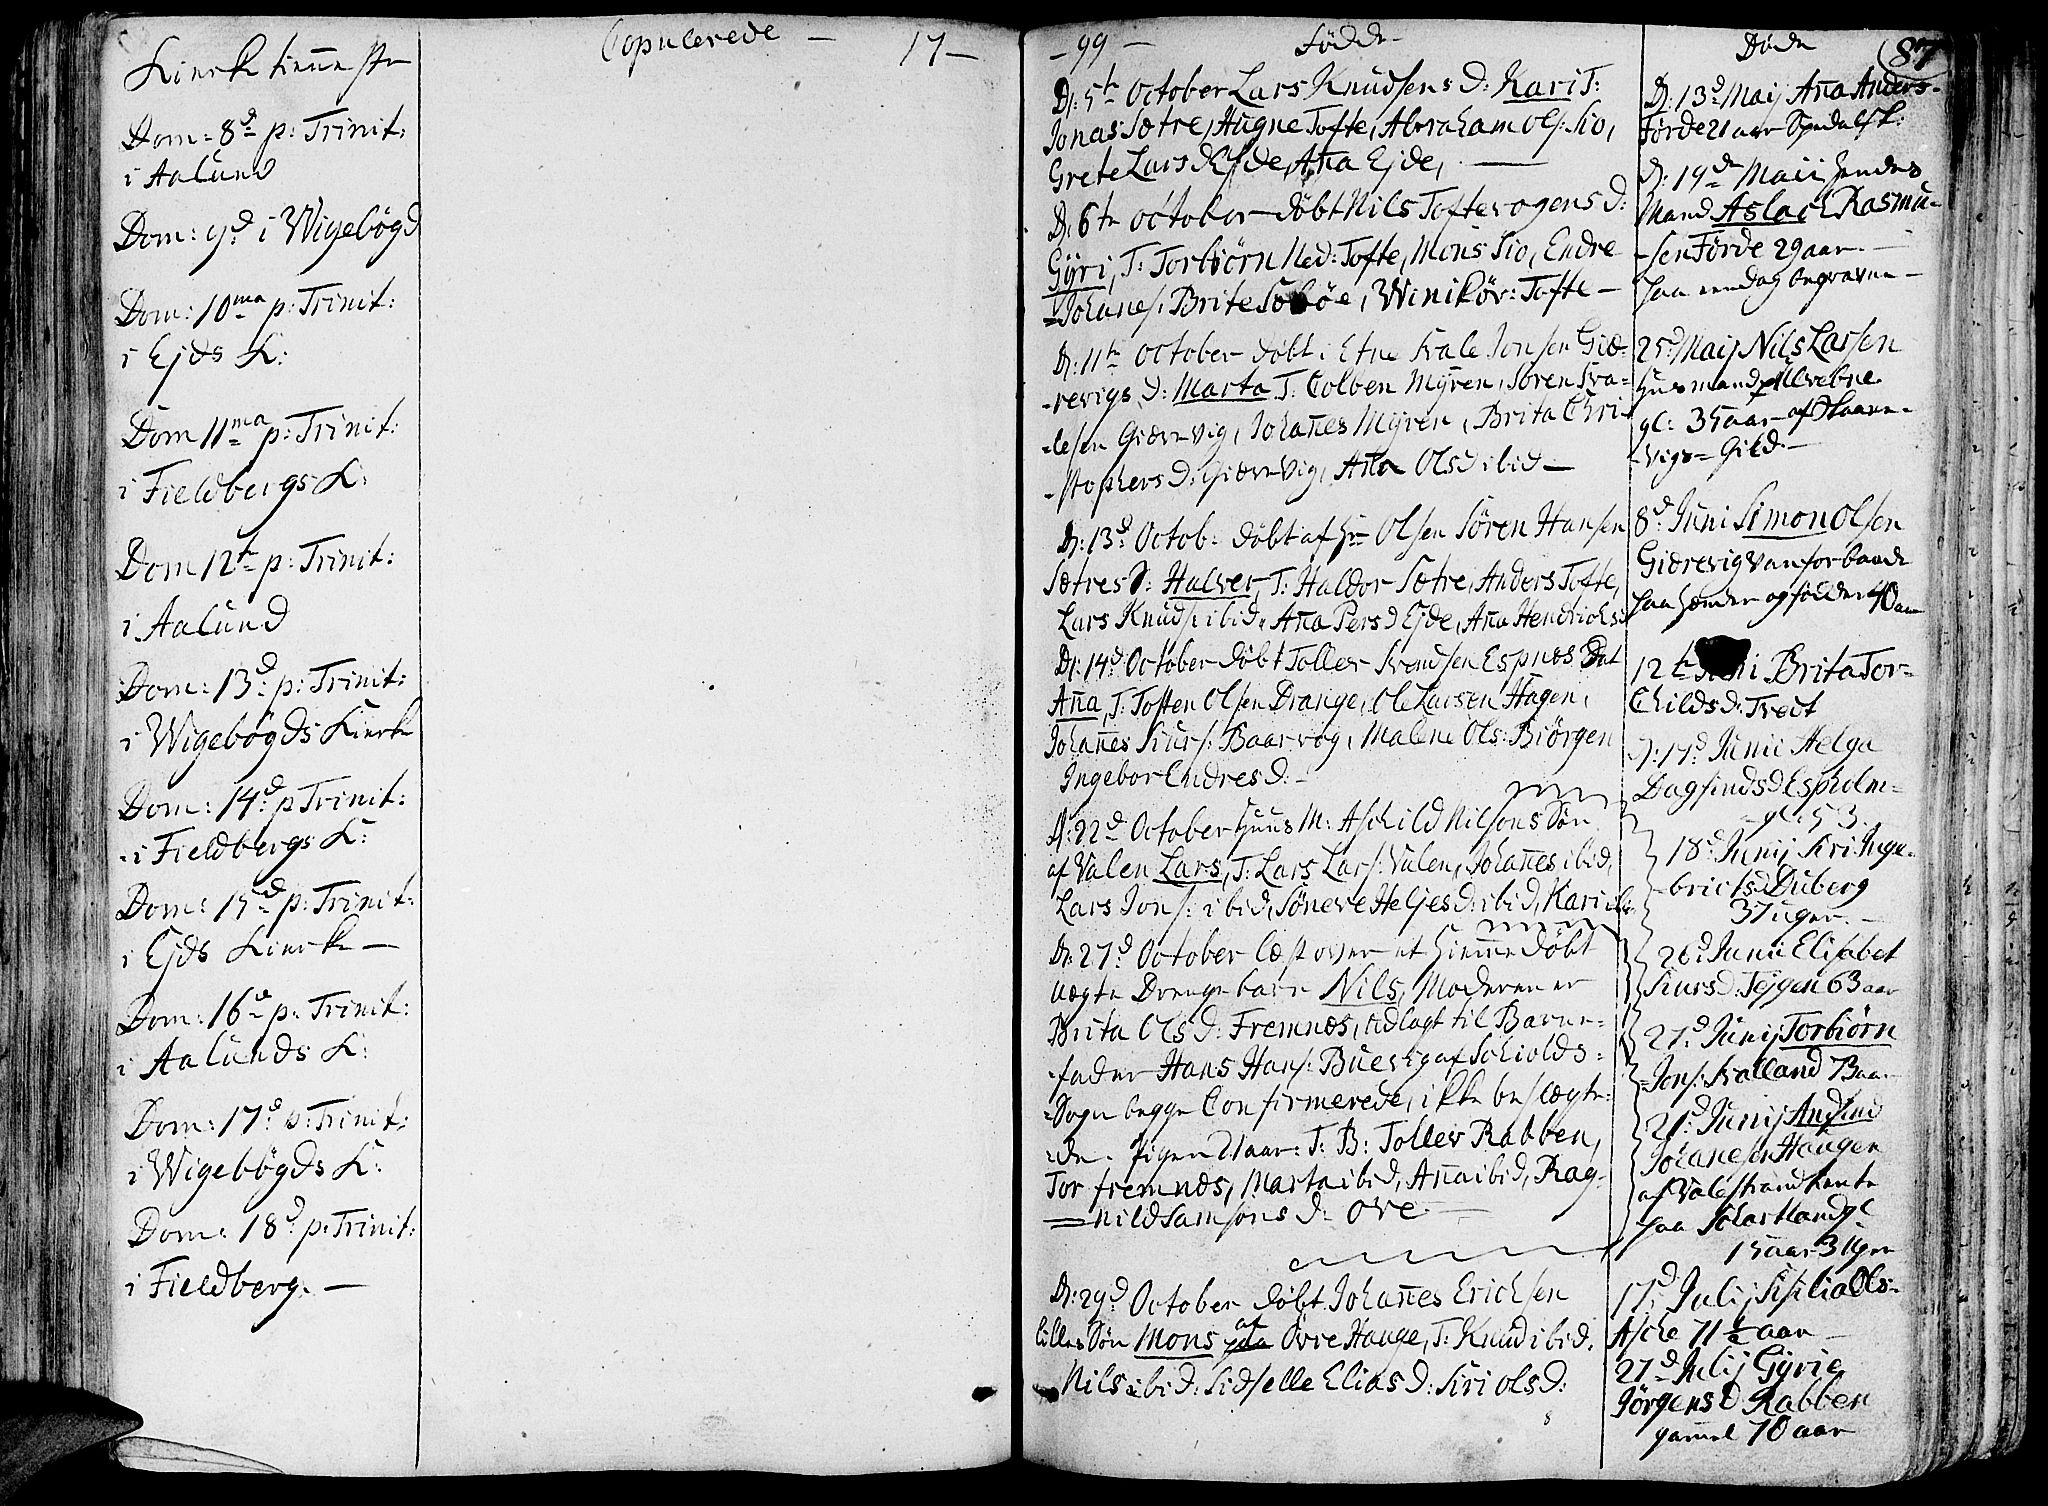 Kierketienneste
Copulerede — 17—
Dom: 8d p: Trinit:
i Aalund
Dom: 9d i Wigebögd
Dom: 10ma p: Trinit:
i Ejds K:
Dom 11ma p: Trinit:
i Fieldbergs K:
Dom 12t p: Trinit:
i Aalund
Dom: 13d p: Trinit:
i Wigebögds Kierke
Dom: 14d p Trinit:
i Fieldbergs K:
Dom: 15d p: Trinit:
i Ejds Kierke —
Dom: 16d p: Trinit:
i Aalunds K:
Dom: 17d p: Trinit:
i Wigebögds K:
Dom: 18d p: Trinit:
i Fieldberg. —
— 99 — Födde —
D: 5te October Lars Knudsens D: Kari T:
Jonas Sætre, Augne Tofte, Abraham Ols: Sio,
Grete Lars d Ejde, Aña Ejde, —
D: 6te October döbt Nils Toftevogens D:
Gÿri, T: Torbiörn Ned: Tofte, Mons Sio, Endre
Johanes: Brite Sæböe, Winikör: Tofte —
D: 11te October döbt i Etne Svale Jonsen Giæ-
-revigs D: Marta T: Colben Mÿren, Sören Sva-
-lesen Giærevig, Johañes Mÿren, Brita Chri-
-stophers D: Giærevig, Aña Olsd ibid —
D: 13d Octob: döbt af Hr Olsen Sören Hansen
Sætres S: Halver, T: Haldor Sætre, Anders Tofte,
Lars Knuds: ibid, Aña Pers D Ejde, Aña Hendrichsd
D: 14d October döbt Tollev Svendsen Espnæs Dat
Aña, T: Tosten Olsen Drange, Ole Larsen Hagen,
Johañes Siurs: Baarvog, Malene Ols: Biörgen
Ingebor Endres d: —
D: 22d October Huus M: Aschild Nilsons Sön
af Valen Lars, T: Lars Lars: Valen, Johañes ibid,
Lars Jons: ibid, Söneve Heljes d: ibid, Kari ibid
D: 27d October læst over et hiemme döbt
uægte Drenge barn Nils, Moderen er
Brita Ols d: Fremnæs, udlagt til Barne-
-fader Hans Hans: Bueség af Schiolds-
-Sogn begge Confirmerede, ikke beslægte-
-de. Pigen 21 aar: T: B: Tollev Rabben,
Tor fremnæs, Marta ibid, Aña ibid, Rag-
—nild Samsons D: Ove —
D: 29d October döbt Johañes Erichsen
lilles Sön Mons af Övre Hauge, T: Knud ibid,
Nils ibid: Sidselle Elias D: Siri Ols D:
Döde 87
D: 13d Maij Aña Anders-
Förde 21 aar Spedalsk:
D: 19d Maii hendes
Mand Aslach Rasmu-
-sen Förde 29 aar —
paa een dag begravne —
25d Maij Nils Larsen
Huusmand
gl: 35 aar
-vigs-Gild. —
8d Juni Simon Olsen
Giærevig Vanforbaade
paa Hænder og födder 40 aar
12te Juni Brita Tor-
Childs d: Treit
D: 17d Junii Helga
Dagfinds d Espholm-
gl: 53.
18d Junij Siri Inge-
-brictsd Duberg
3 Uger. —
26d Junii Elisabet
Siurs d: Tejgen 63 aar
27d Junij Torbiörn
Jons: Svalland Ba
21d Junij Anfind
Johanesen Haugen
af Valestrand
paa Schortland gl
15 aar 3 Ugr
17d Julij Sisilia Ols-
Asche 71 ½ aar —
27d Julij Gÿrie
Jörgens D Rabben
gamel 70 aar